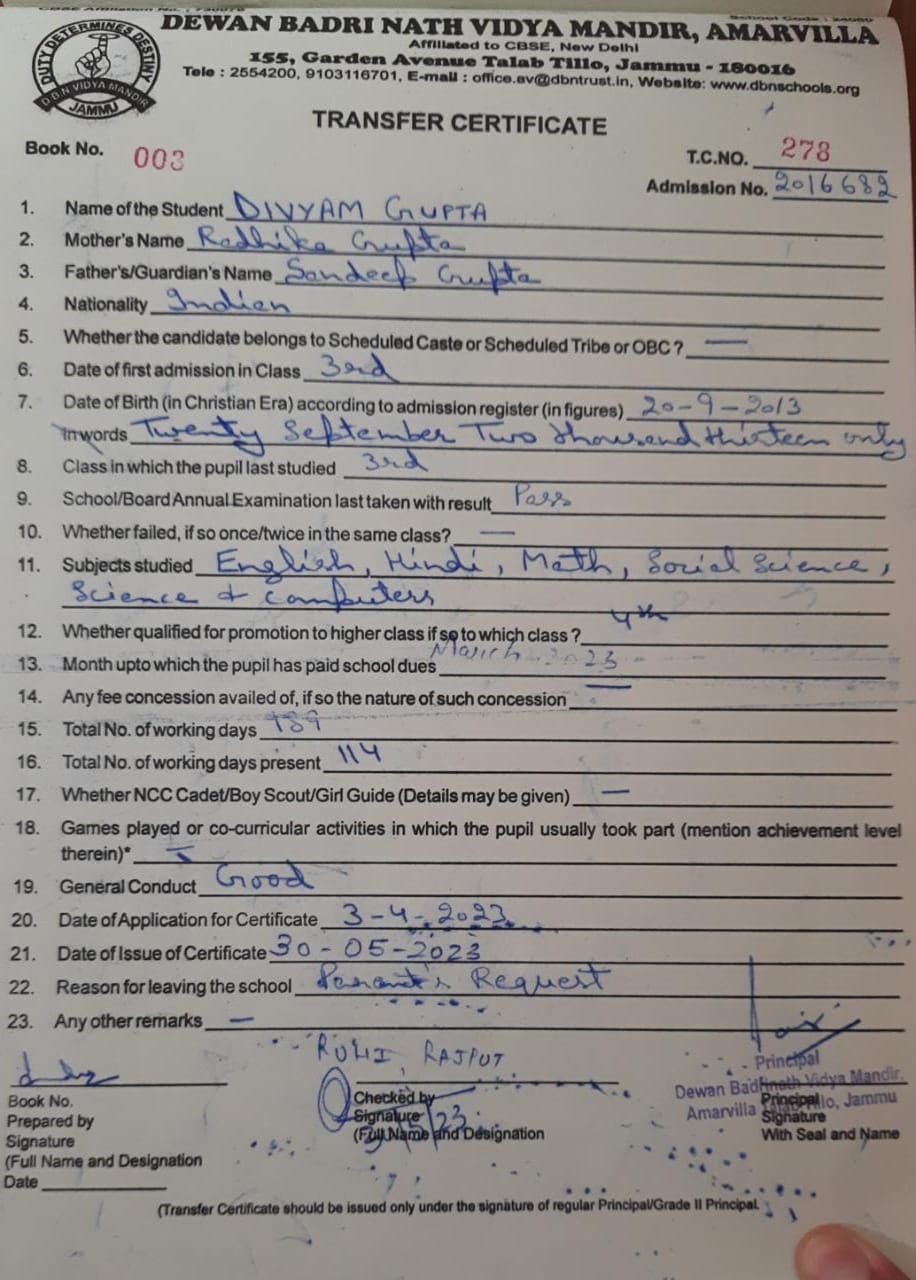 DEWAN BADRI NATH VIDYA MANDIR, AMARVILLA
Affiliated to CBSE, New Delhi
155, Garden Avenue Talab Tillo, Jammu - 180016
Tele : 2554200, 9103116701, E-mail : office.av@dbntrust.in, Website: www.dbnschools.org
DUTY DETERMINES DESTINY
D.B.N VIDYA MANDIR
JAMMU
TRANSFER CERTIFICATE
Book No. 003
T.C.NO. 278
Admission No. 2016682
1. Name of the Student DIVYAM GUPTA
2. Mother's Name Radhika Gupta
3. Father's/Guardian's Name Sandeep Gupta
4. Nationality Indian
5. Whether the candidate belongs to Scheduled Caste or Scheduled Tribe or OBC ? —
6. Date of first admission in Class 3rd
7. Date of Birth (in Christian Era) according to admission register (in figures) 20-9-2013
In words Twenty September Two thousand thirteen only
8. Class in which the pupil last studied 3rd
9. School/Board Annual Examination last taken with result Pass
10. Whether failed, if so once/twice in the same class? —
11. Subjects studied English, Hindi, Math, Social Science,
Science & Computers
12. Whether qualified for promotion to higher class if so to which class ? 4th
13. Month upto which the pupil has paid school dues March 2023
14. Any fee concession availed of, if so the nature of such concession —
15. Total No. of working days 189
16. Total No. of working days present 114
17. Whether NCC Cadet/Boy Scout/Girl Guide (Details may be given) —
18. Games played or co-curricular activities in which the pupil usually took part (mention achievement level
therein)*
19. General Conduct Good
20. Date of Application for Certificate 3-4-2023
21. Date of Issue of Certificate 30-05-2023
22. Reason for leaving the school Parent's Request
23. Any other remarks —
RUHI RAJPUT
Principal
Dewan Badrinath Vidya Mandir,
Amarvilla Talab Tillo, Jammu
Book No.
Prepared by
Signature
(Full Name and Designation
Date
Checked by
Signature
(Full Name and Designation
Principal
Signature
With Seal and Name
(Transfer Certificate should be issued only under the signature of regular Principal/Grade II Principal.